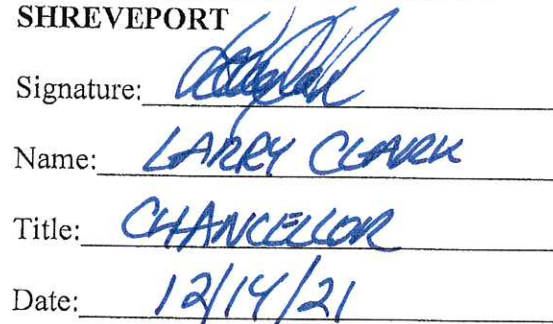 SHREVEPORT
Signature:
Name: LARRY CLARK
Title: CHANCELLOR
Date: 12/14/21